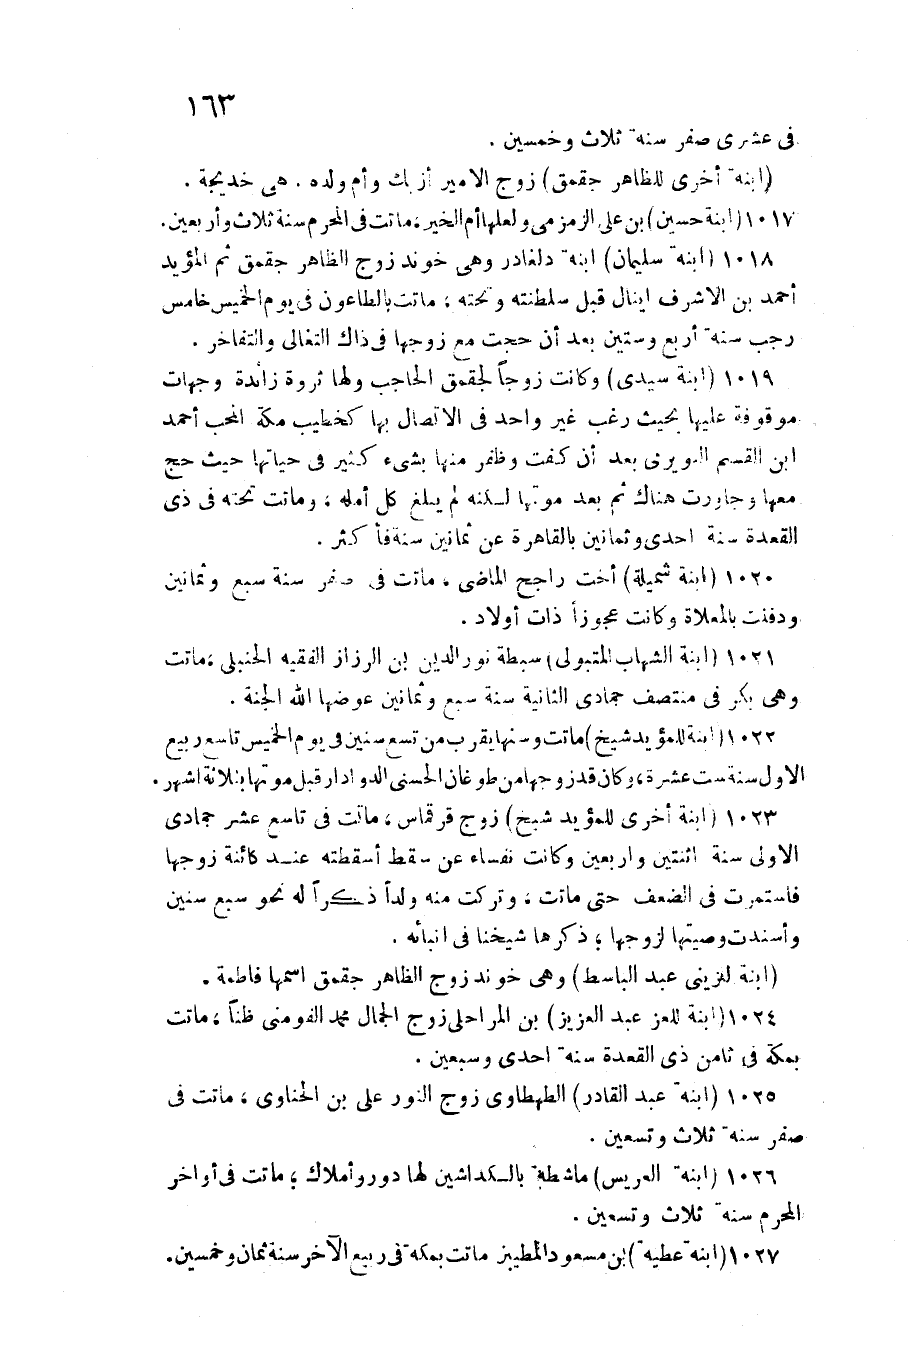 ١٦٣
فى عشرى صفر سنة ثلاث وخمسين .
(ابنة أخرى للظاهر جقمق) زوج الامير أزبك وأم ولده . هى خديجة .
١٠١٧ (ابنة حسين) بن على الزمزمى ولعلها أم الخير، ماتت فى المحرم سنة ثلاث وأربعين.
١٠١٨ (ابنة سليمان) ابنة دلغادر وهى خوند زوج الظاهر جقمق ثم المؤيد
أحمد بن الاشرف اينال قبل سلطنته وتحته ؛ ماتت بالطاعون فى يوم الخميس خامس
رجب سنة أربع وستين بعد أن حجت مع زوجها فى ذاك التغالى والتفاخر .
١٠١٩ (ابنة سيدى) وكانت زوجاً لجقمق الحاجب ولها ثروة زائدة وجهات
موقوفة عليها بحيث رغب غير واحد فى الاتصال بها كخطيب مكة المحب أحمد
ابن القسم النويرى بعد أن كفت وظفر منها بشىء كثير فى حياتها حيث حج
معها وجاورت هناك ثم بعد موتها لكنه لم يبلغ كل أمله ، وماتت تحته فى ذى
القعدة سنة احدى وثمانين بالقاهرة عن ثمانين سنة فأ كثر .
١٠٢٠ (ابنة شميلة) أخت راجح الماضى ، ماتت فى صفر سنة سبع وثمانين
ودفنت بالمعلاة وكانت عجوزاً ذات أولاد .
١٠٢١ (ابنة الشهاب المتبولى) سبطة نور الدين بن الرزاز الفقيه الحنبلى ، ماتت
وهى بكر فى منتصف جمادى الثانية سنة سبع وثمانين عوضها الله الجنة .
١٠٢٢ (ابنة للمؤيد شيخ) ماتت وسنها يقرب من تسع سنين فى يوم الخميس تاسع ربيع
الاول سنة ست عشرة ، وكان قد زوجها من طوغان الحسنى الدوادار قبل موتها بثلاثة اشهر .
١٠٢٣ (ابنة أخرى للمؤيد شيخ) زوج قرقماس ، ماتت فى تاسع عشر جمادى
الاولى سنة اثنتين واربعين وكانت نفساء عن سقط أسقطته عند كائنة زوجها
فاستمرت فى الضعف حتى ماتت ، وتركت منه ولداً ذكراً له نحو سبع سنين
وأسندت وصيتها لزوجها ؛ ذكرها شيخنا فى انبائه .
(ابنة لزينى عبد الباسط) وهى خوند زوج الظاهر جقمق اسمها فاطمة .
١٠٢٤ (ابنة للعز عبد العزيز) بن المراحلى زوج الجمال محمد الفومنى ظناً ، ماتت
بمكة فى ثامن ذى القعدة سنة احدى وسبعين .
١٠٢٥ (ابنة عبد القادر) الطهطاوى زوج النور على بن الحناوى ، ماتت فى
صفر سنة ثلاث وتسعين .
١٠٢٦ (ابنة العريس) ماشطة بالكداشين لها دور وأملاك ؛ ماتت فى أواخر
المحرم سنة ثلاث وتسعين .
١٠٢٧ (ابنة عطية) بن مسعود المطيبز ماتت بمكة فى ربيع الآخر سنة ثمان وخمسين .